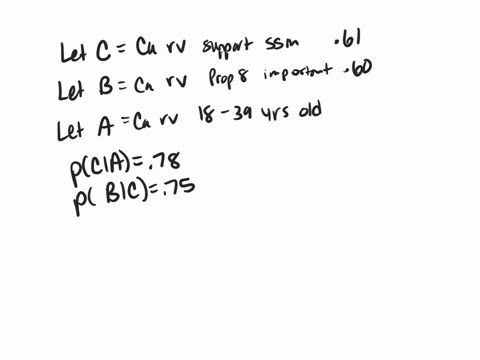 Let C = Ca rv support ssm .61
Let B = Ca rv Prop 8 important .60
Let A = Ca rv 18-39 yrs old
P(C|A)=.78
P( B|C)=.75